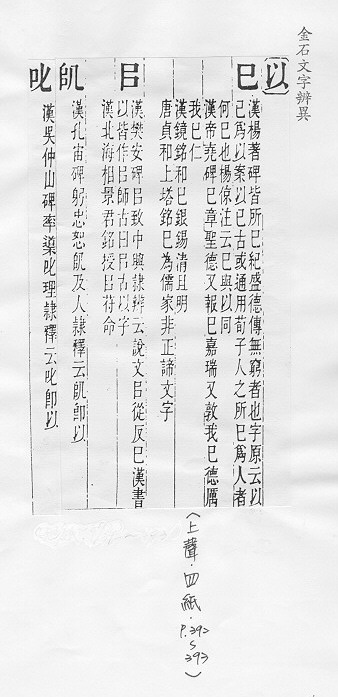 金石文字辨異
以
巳
漢楊著碑皆所巳紀盛德傳無窮者也字原云以
巳爲以案以巳古或通用荀子人之所巳爲人者
何巳也楊倞注云巳與以同
漢帝堯碑巳章聖德又報巳嘉瑞又敦我巳德厲
我巳仁
漢鏡銘和巳銀錫清且明
唐貞和上塔銘巳為儒家非正諦文字
㠯
漢樊安碑㠯致中興隸辨云說文㠯從反巳漢書
以皆作㠯師古曰㠯古以字
漢北海相景君銘授㠯符命
漢孔宙碑躬忠恕及人隸釋云即以
叱
漢吳仲山碑率導叱理隸釋云叱即以
（上聲．四紙．
P.392
S
393）